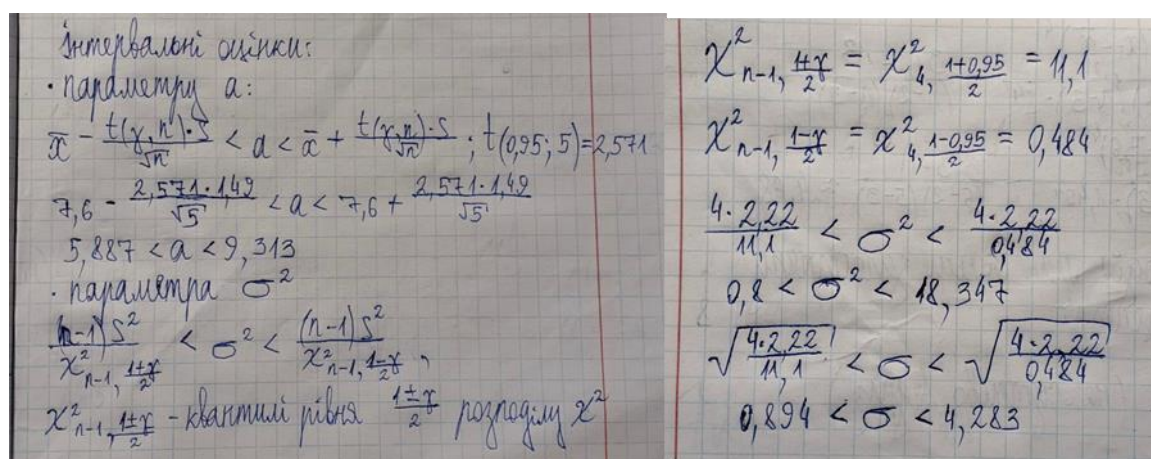 Інтервальні оцінки:
· параметру a:
x̄ - t(γ,n)·S/√n < a < x̄ + t(γ,n)·S/√n ; t(0,95; 5)=2,571
7,6 - 2,571·1,49/√5 < a < 7,6 + 2,571·1,49/√5
5,887 < a < 9,313
· параметра σ²
(n-1)S²/χ²_{n-1, (1+γ)/2} < σ² < (n-1)S²/χ²_{n-1, (1-γ)/2} ,
χ²_{n-1, (1±γ)/2} - квантилі рівня (1±γ)/2 розподілу χ²
χ²_{n-1, (1+γ)/2} = χ²_{4, (1+0,95)/2} = 11,1
χ²_{n-1, (1-γ)/2} = χ²_{4, (1-0,95)/2} = 0,484
4·2,22/11,1 < σ² < 4·2,22/0,484
0,8 < σ² < 18,347
√(4·2,22/11,1) < σ < √(4·2,22/0,484)
0,894 < σ < 4,283